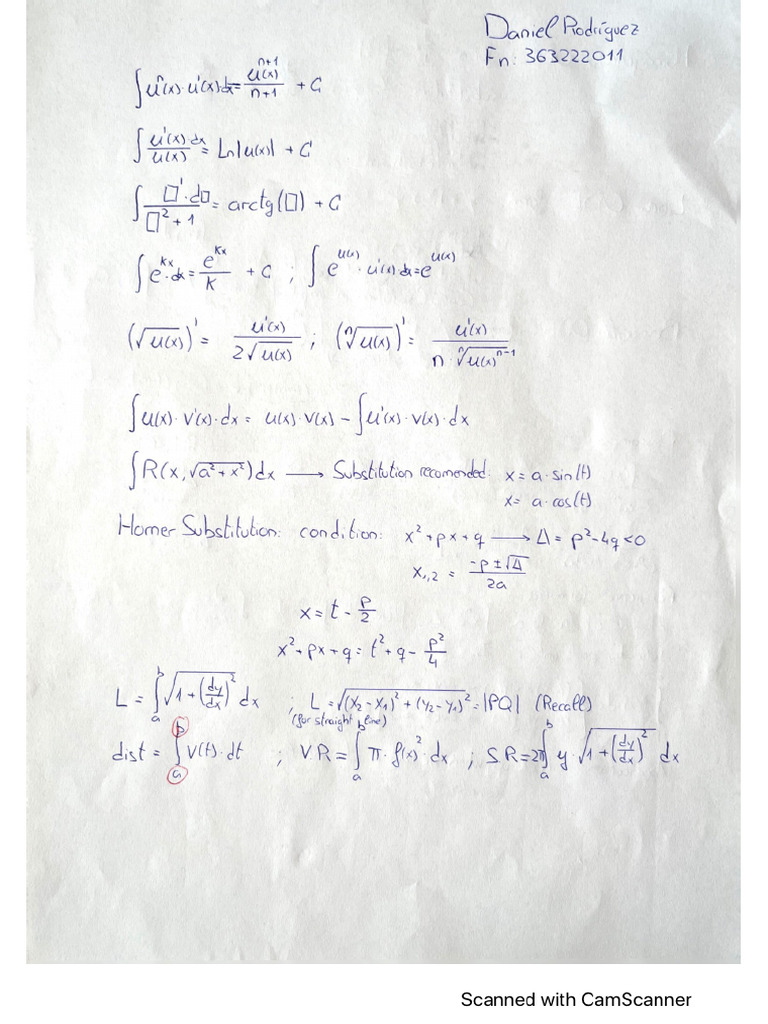 Daniel Rodríguez
Fn: 363222011
∫uⁿ(x)·u'(x)dx = u(x)^(n+1)/(n+1) + C
∫u'(x)dx/u(x) = Ln|u(x)| + C
∫□'·d□/(□²+1) = arctg(□) + C
∫e^(kx)·dx = e^(kx)/k + C ; ∫e^(u(x))·u'(x)dx = e^(u(x))
(√u(x))' = u'(x)/(2√u(x)) ; (ⁿ√u(x))' = u'(x)/(n·ⁿ√(u(x)^(n-1)))
∫u(x)·v'(x)·dx = u(x)·v(x) − ∫u'(x)·v(x)·dx
∫R(x,√(a²+x²))dx ⟶ Substitution recomended: x = a·sin(t)
x = a·cos(t)
Horner Substitution: condition: x²+px+q ⟶ Δ = p²−4q<0
x₁,₂ = (−p±√Δ)/2a
x = t − p/2
x²+px+q = t²+q − p²/4
L = ∫ₐᵇ √(1+(dy/dx)²) dx ; L = √((x₂−x₁)²+(y₂−y₁)²) = |PQ| (Recall)
(for straight line)
dist = ∫ₐᵇ v(t)·dt ; V.R = ∫ₐᵇ π·f(x)²·dx ; S.R = 2π∫ₐᵇ y·√(1+(dy/dx)²) dx
Scanned with CamScanner